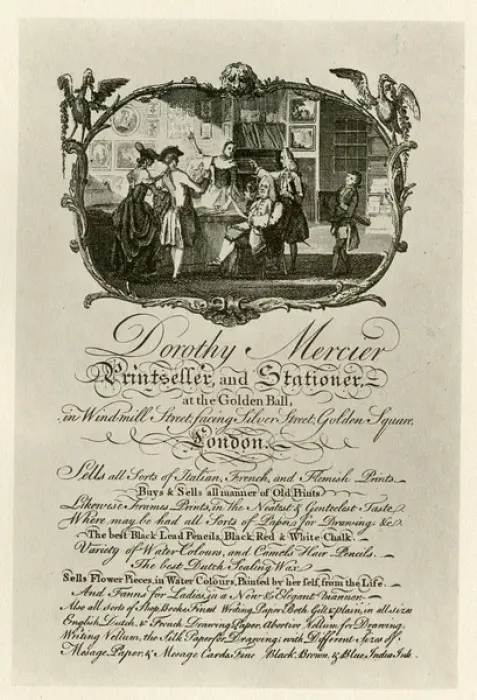 Dorothy Mercier
Printseller, and Stationer,
at the Golden Ball,
in Windmill Street, facing Silver Street, Golden Square,
London.
Sells all Sorts of Italian, French, and Flemish Prints
Buys & Sells all manner of Old Prints
Likewise Frames Prints, in the Neatest & Genteelest Taste,
Where may be had all Sorts of Papers for Drawing &c.
The best Black Lead Pencils, Black, Red & White Chalk.
Variety of Water Colours, and Camels Hair Pencils.
The best Dutch Sealing Wax
Sells Flower Pieces, in Water Colours, Painted by her self, from the Life
And Fanns for Ladies, in a New & Elegant manner.
Also all sorts of Shop Books Finest Writing Paper Both Gilt & plain, in all sizes
English, Dutch, & French Drawing Paper, Abortive Vellum for Drawing,
Writing Vellum, the Silk Paper for Drawing; with Different Sizes of
Mesage Paper, & Mesage Cards Fine Black, Brown, & Blue India Ink.